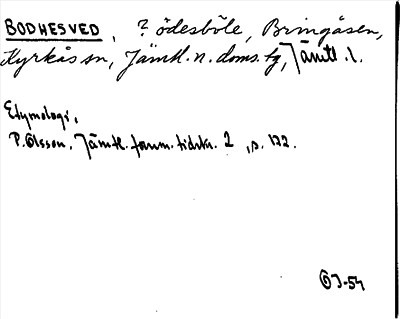 BODHESVED, ? ödesböle, Bringåsen,
Kyrkås sn, Jämtl. n. doms. tg, Jämtl. l.
Etymologi.
P. Olsson, Jämtl. forn. tidskr. 2, s. 122.
OJ-54